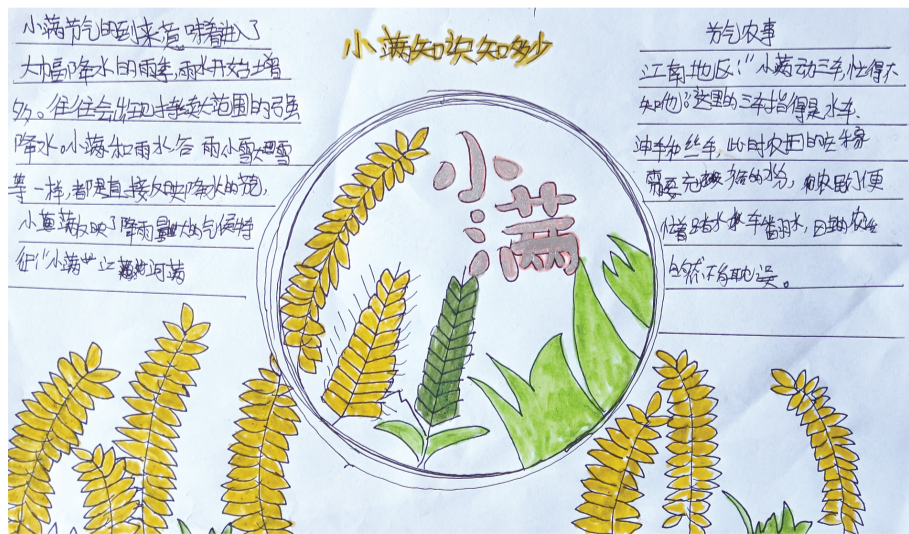 小满知识知多少
小满节气的到来意味着进入了
大幅降水的雨季,雨水开始增
多。往往会出现持续大范围的强
降水。小满和雨水谷雨小雪大雪
等一样,都是直接反映降水的节气,
小满反映了降雨量大的气候特
征:"小满 江满河满
小满
节气农事
江南地区:"小满动三车,忙得不
知他"这里的三车指得是水车、
油车和丝车,此时农田的庄稼
需要充 的水分,农民们便
忙着踏水车翻水,
不能耽误。